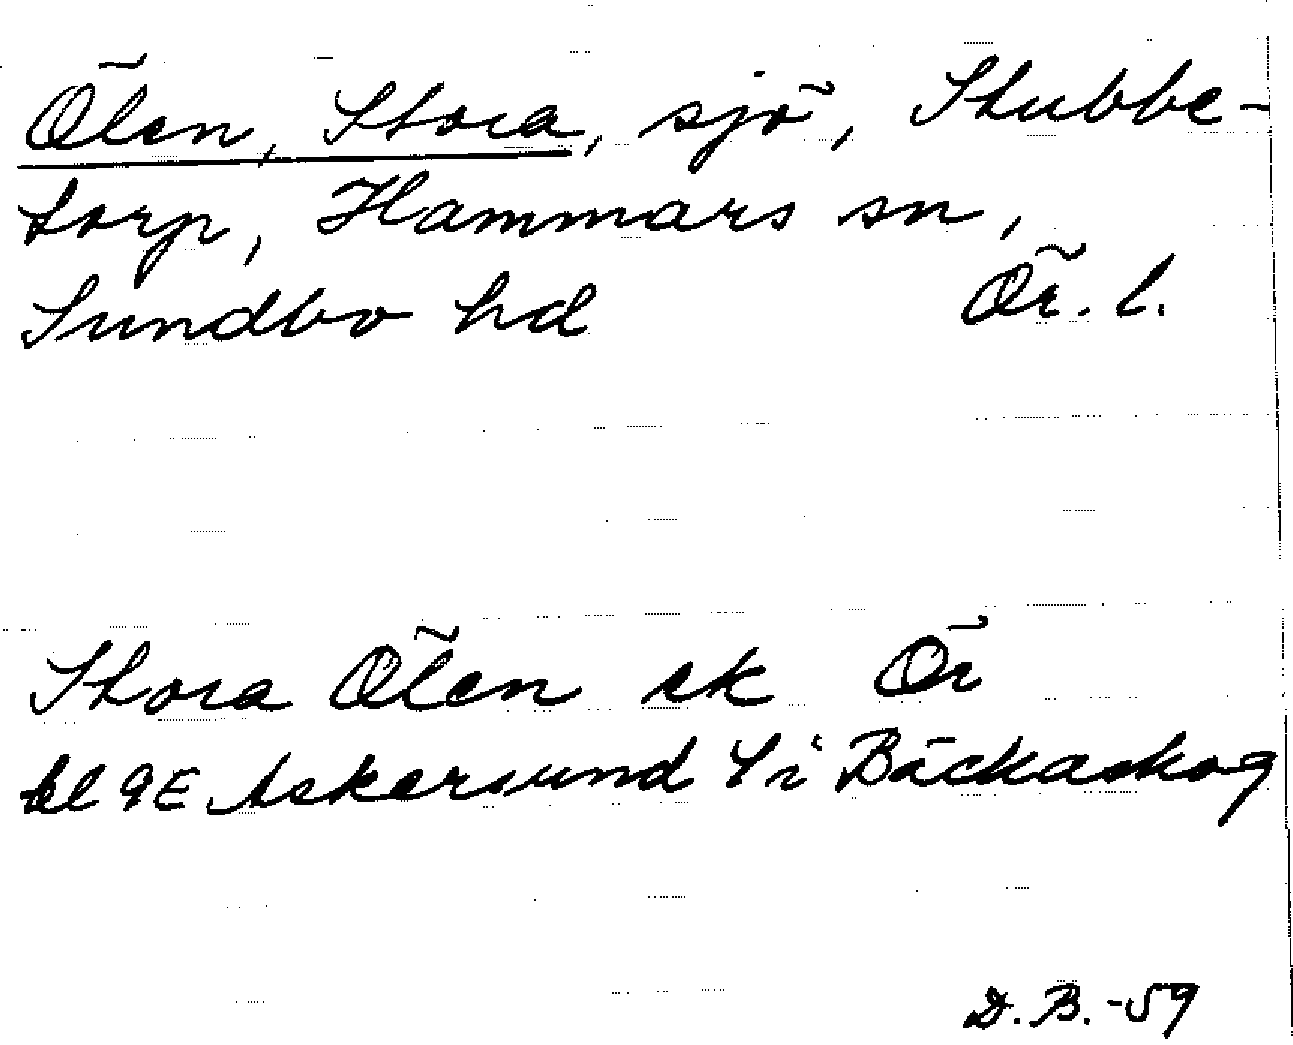 Ölen, Stora, sjö, Stubbe-
torp, Hammars sn,
Sundbo hd Ör. l.
Stora Ölen ek Ör
bl 9E Askersund Y i Bäckaskog
D. B. -59